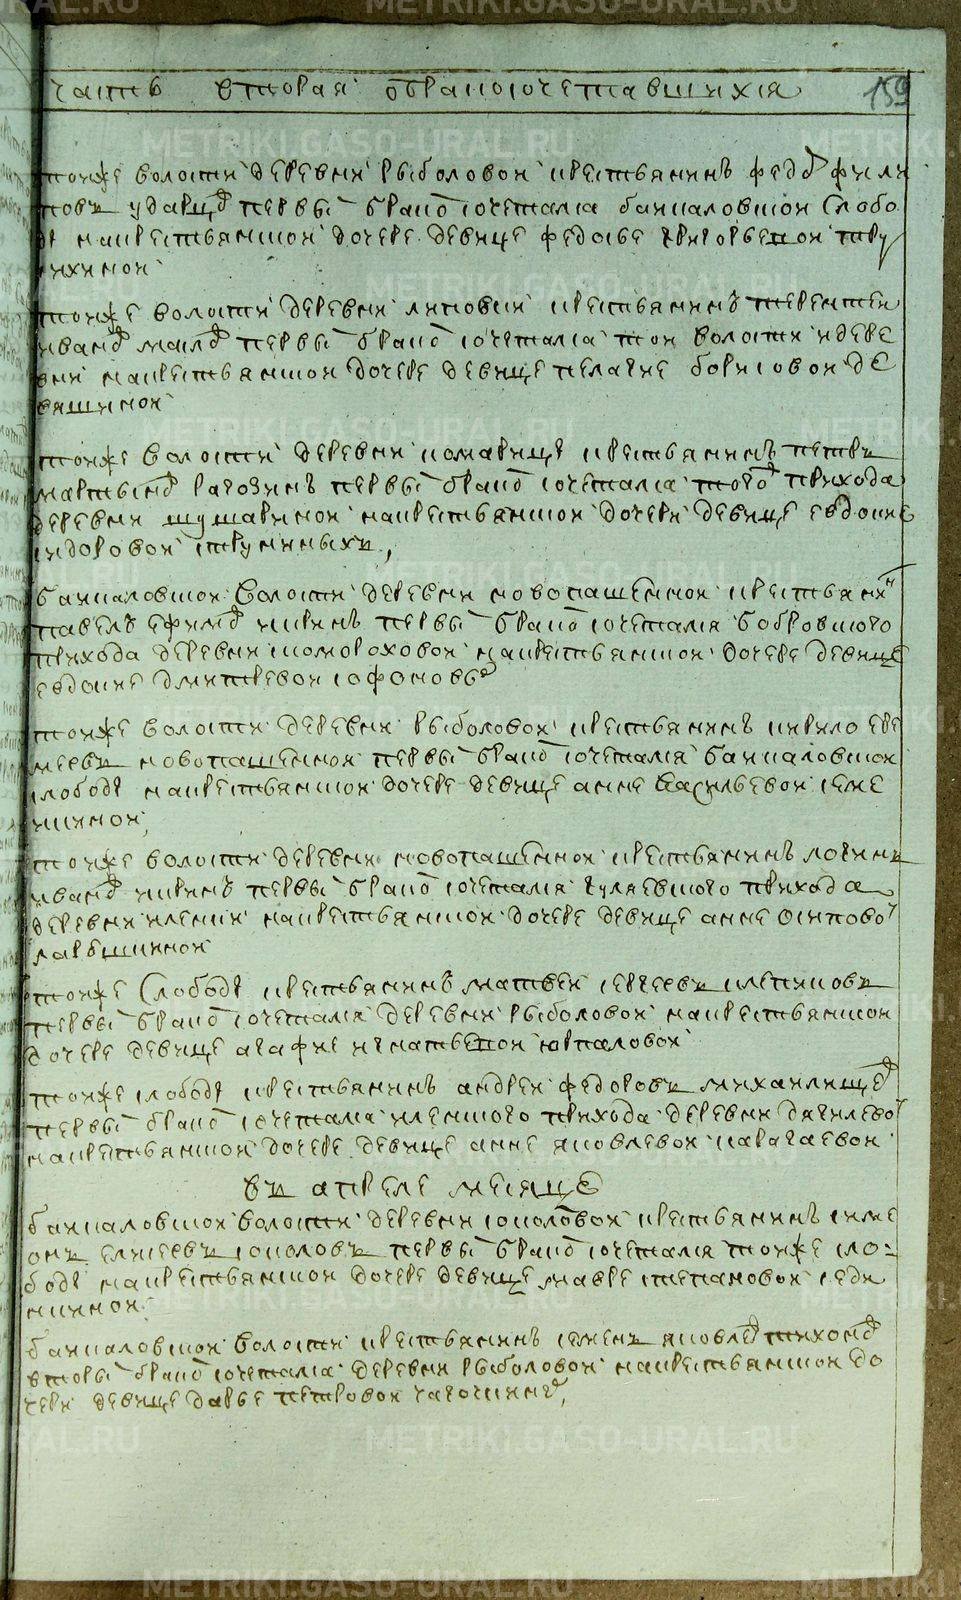 часть вторая обракосочетавшихся 159
тоиже волости деревни рыболовой крестьянинъ федоръ фили
повъ ударцовъ первы бракомъ сочетался баикаловской слобо
ды на крестьянской дочере девице федосье григорьевой тру
нихиной
тоиже волости деревни липовки крестьянинъ терентей
ивановъ первы бракомъ сочетался той волости и дере
вни на крестьянской дочере девице пелагие борисовой де
вяшиной
тоиже волости деревни комарицы крестьянинъ петръ
мартыновъ рагозинъ первы бракомъ сочетался того прихода
деревни шушариной на крестьянской дочери девице евдокие
сидоровой
баикаловской волости деревни новопашенной крестьянинъ
павелъ ефимовъ первы бракомъ сочетался бобровского
прихода деревни скомороховой на крестьянской дочере девице
евдокие дмитревой софоновы
тоиже волости деревни рыболовой крестьянинъ кирило ере
меевъ новопашенной первы бракомъ сочетался баикаловской
слободы на крестьянской дочере девице анне васильевой
тоиже волости деревни новопашенной крестьянинъ логинъ
ивановъ первы бракомъ сочетался гуляевского прихода
деревни иленки на крестьянской дочере девице анне осиповой
тоиже слободы крестьянинъ матвей сергеевъ слепиковъ
первы бракомъ сочетался деревни рыболовой на крестьянской
дочере девице агафие игнатьевой
тоиже слободы крестьянинъ андрей федоровъ михаилищовъ
первы бракомъ сочетался иленского прихода деревни дягилевой
на крестьянской дочере девице анне яковлевой карагаевой
въ апреле месяце
баикаловской волости деревни соколовой крестьянинъ симе
онъ елисеевъ соколовъ первы бракомъ сочетался тоиже сло
боды на крестьянской дочере девице мавре степановой
баикаловской волости крестьянинъ семенъ яковлевъ тихоновъ
вторы бракомъ сочетался деревни рыболовой на крестьянской до
чери девице дарье петровой
METRIKI.GASO-URAL.RU